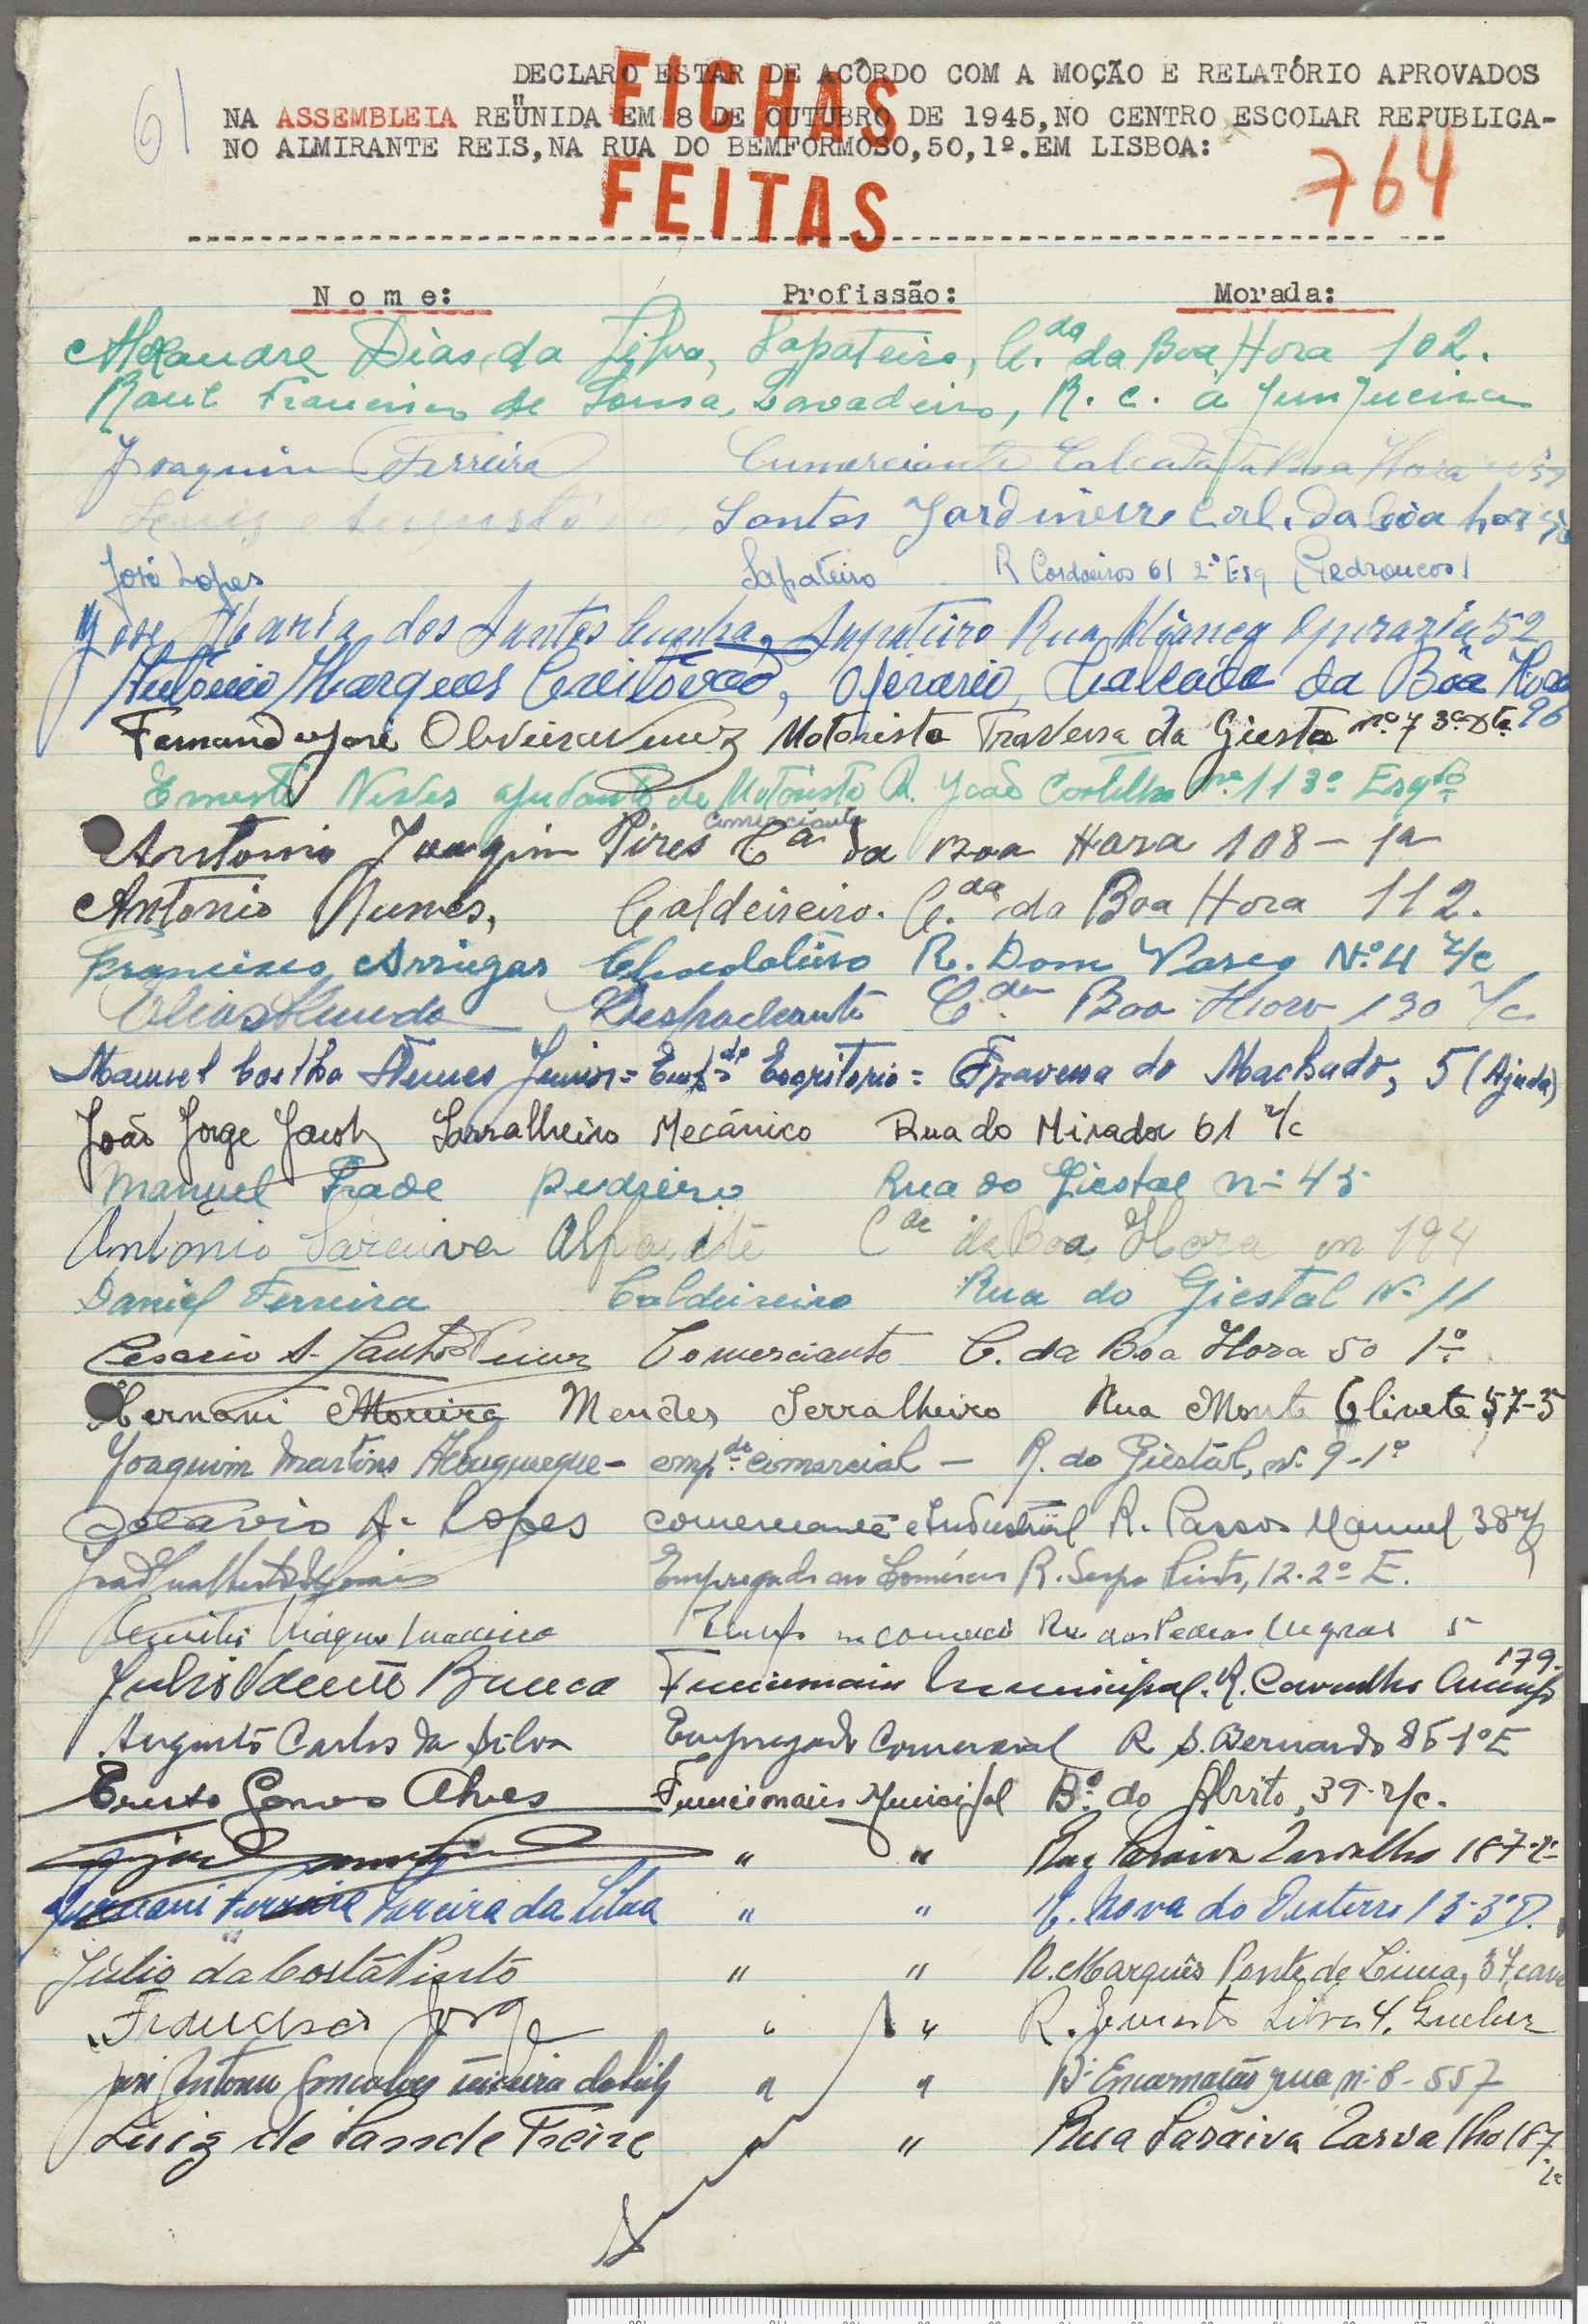 61
DECLARO ESTAR DE ACÔRDO COM A MOÇÃO E RELATÓRIO APROVADOS
NA ASSEMBLEIA REÜNIDA EM 8 DE OUTUBRO DE 1945, NO CENTRO ESCOLAR REPUBLICA-
NO ALMIRANTE REIS, NA RUA DO BEMFORMOSO, 50, 1º. EM LISBOA:
FICHAS
FEITAS
764
Nome: Profissão: Morada:
Alexandre Dias da Silva, Sapateiro, C.da da Boa Hora 102.
Raul Francisco de Sousa, R. C. á Junqueira
Joaquim Ferreira Cumerciante Calcada da Boa Hora
Augusto Santos Cal. da bôa hora
José Lopes Sapateiro R Cordoeiros 61 2º Esq (Pedrouços)
José Maria dos Santos Cunha, Sapateiro Rua Aliança Operaria 52
António Marques, Operario, Calcada da Bôa Hora 96
Fernando José Oliveira Motorista Travessa da Giesta nº 7 3º Dto
Ernesto Neves ajudante de Motorista R. João Castilho nº 11 3º Esqdo
Antonio Joaquim Pires comerciante Ca da Boa Hora 108 - 1º
Antonio Nunes, Caldeireiro. C.da da Boa Hora 112.
Francisco Arrugas R. Dom Vasco Nº 4 r/c
Despachante C.da Boa Hora 130 r/c
Manuel Coelho Nunes Junior = Empdo Escritorio = Travessa do Machado, 5 (Ajuda)
João Jorge Jacob Serralheiro Mecânico Rua do Mirador 61 r/c
Manuel Frade pedreiro Rua do Giestal nº 45
Antonio Saraiva Alfaiate Cda da Boa Hora n 194
Daniel Ferreira Caldeireiro Rua do Giestal Nº 11
Cesario A. Santos Comerciante C. da Boa Hora 50 1º
Hernani Moreira Mendes Serralheiro Rua Monte Olivete 57-3
Joaquim Martins Albuquerque - empdo comercial - R. do Giestal, nº 9-1º
Octavio A. Lopes comerciante e Industrial R. Passos Manuel 38
Empregado no Comércio R. Serpa Pinto, 12.2º E.
Emp no comercio Rua das Pedras Negras 5
Julio Vicente Funcionario Municipal. R. Carvalho Araujo 179.
Augusto Carlos da Silva Empregado Comercial R S. Bernardo 86-1º E
Ernesto Gomes Alves Funcionario Municipal Bº do Alvito, 39-r/c.
" " Rua Saraiva Carvalho 187-2º
Hernani Ferreira Pereira da Silva " " R. Nova do Desterro 13-3º D.
Júlio da Costa Pinto " " R. Marquês Ponte de Lima, 37 cave
Francisco Jorge " " R. Silva 4.
José Antonio Gonçalves " " Bº Encarnação rua nº 8-557
Luiz de Sande Freire " " Rua Saraiva Carvalho 187